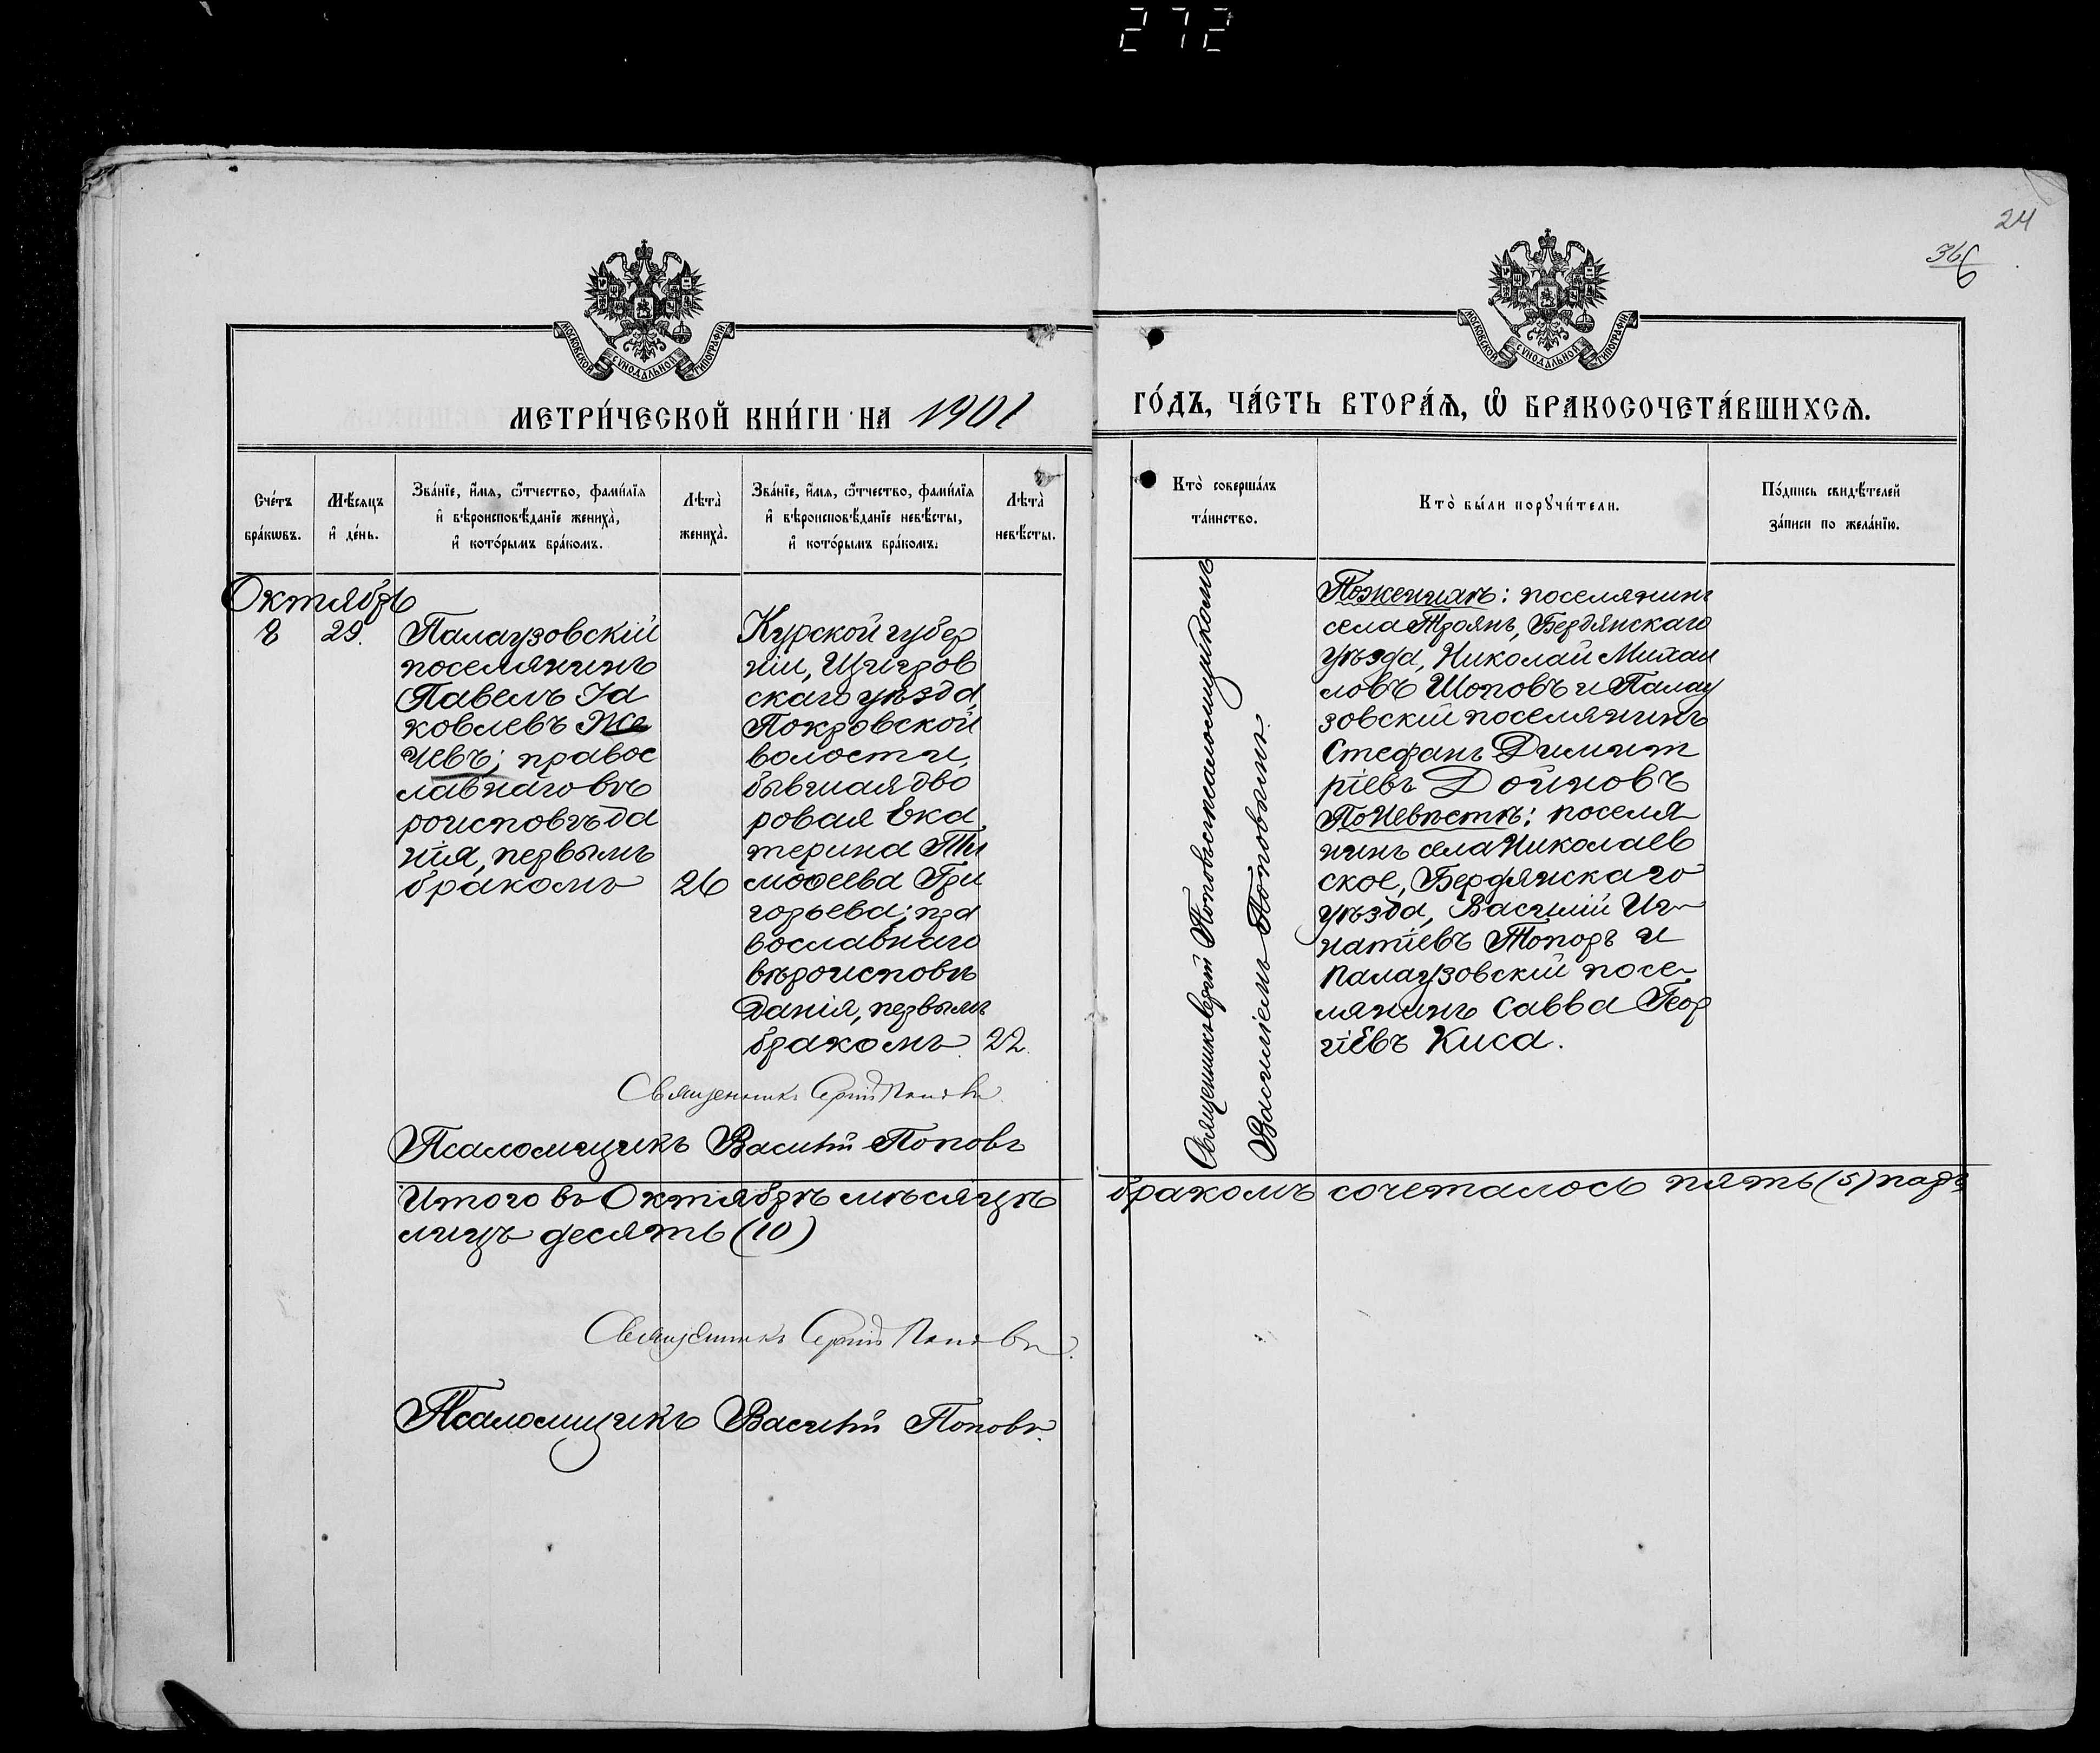 272
24
36
6
МОСКОВСКОЙ СѴНОДАЛЬНОЙ ТИПОГРАФІИ
МОСКОВСКОЙ СѴНОДАЛЬНОЙ ТИПОГРАФІИ
МЕТРИ́ЧЕСКОЙ КНИ́ГИ НА 1901
ГО́ДЪ, ЧА́СТЬ ВТОРА́Ѧ, Ѽ БРАКОСОЧЕТА́ВШИХСѦ.
Сче́тъ
бра́кѡвъ.
Мѣ́сяцъ
и҆ де́нь.
Зва́нїе, и҆́мѧ, ѻ҆́тчество, фами́лїѧ
и҆ вѣроисповѣ́данїе жениха̀,
и҆ кото́рымъ бра́комъ.
Лѣта̀
жениха̀.
Зва́нїе, и҆́мѧ, ѻ҆́тчество, фами́лїѧ
и҆ вѣроисповѣ́данїе невѣ́сты,
и҆ кото́рымъ бра́комъ.
Лѣта̀
невѣ́сты.
Кто̀ соверша́лъ
та́инство.
Кто̀ бы́ли порꙋчи́тели.
По́дпись свидѣ́телей
за́писи по жела́нїю.
Октябрь
8
29.
Палаузовскій
поселянинъ
Павелъ Іа
ковлевъ Же
чевъ; правос
лавнаго вѣ
роисповѣда
нія, первымъ
бракомъ
26
Курской губер
ніи, Щигров
скаго уѣзда,
Покровской
волости,
бывшая дво
ровая Ека
терина Ти
моѳеева Гри
горьева; пра
вославнаго
вѣроисповѣ
данія, первымъ
бракомъ
22.
Священникъ Сергій Поповъ.
Псаломщикъ Василій Поповъ
Священникъ Сергій Поповъ съ псаломщикомъ
Василіемъ Поповымъ.
По женихѣ: поселянинъ
села Троянъ, Бердянскаго
уѣзда, Николай Михаи
ловъ Шоповъ и Палау
зовскій поселянинъ
Стефанъ Димит
ріевъ Дойновъ
По невѣстѣ: поселя
нинъ села Николаев
ское, Бердянскаго
уѣзда, Василій Иг
натіевъ Топоръ и
Палаузовскій посе
лянинъ Савва Геор
гіевъ Киса.
Итого въ Октябрѣ мѣсяцѣ бракомъ сочеталось пять (5) паръ
лицъ десять (10)
Священникъ Сергій Поповъ.
Псаломщикъ Василій Поповъ.